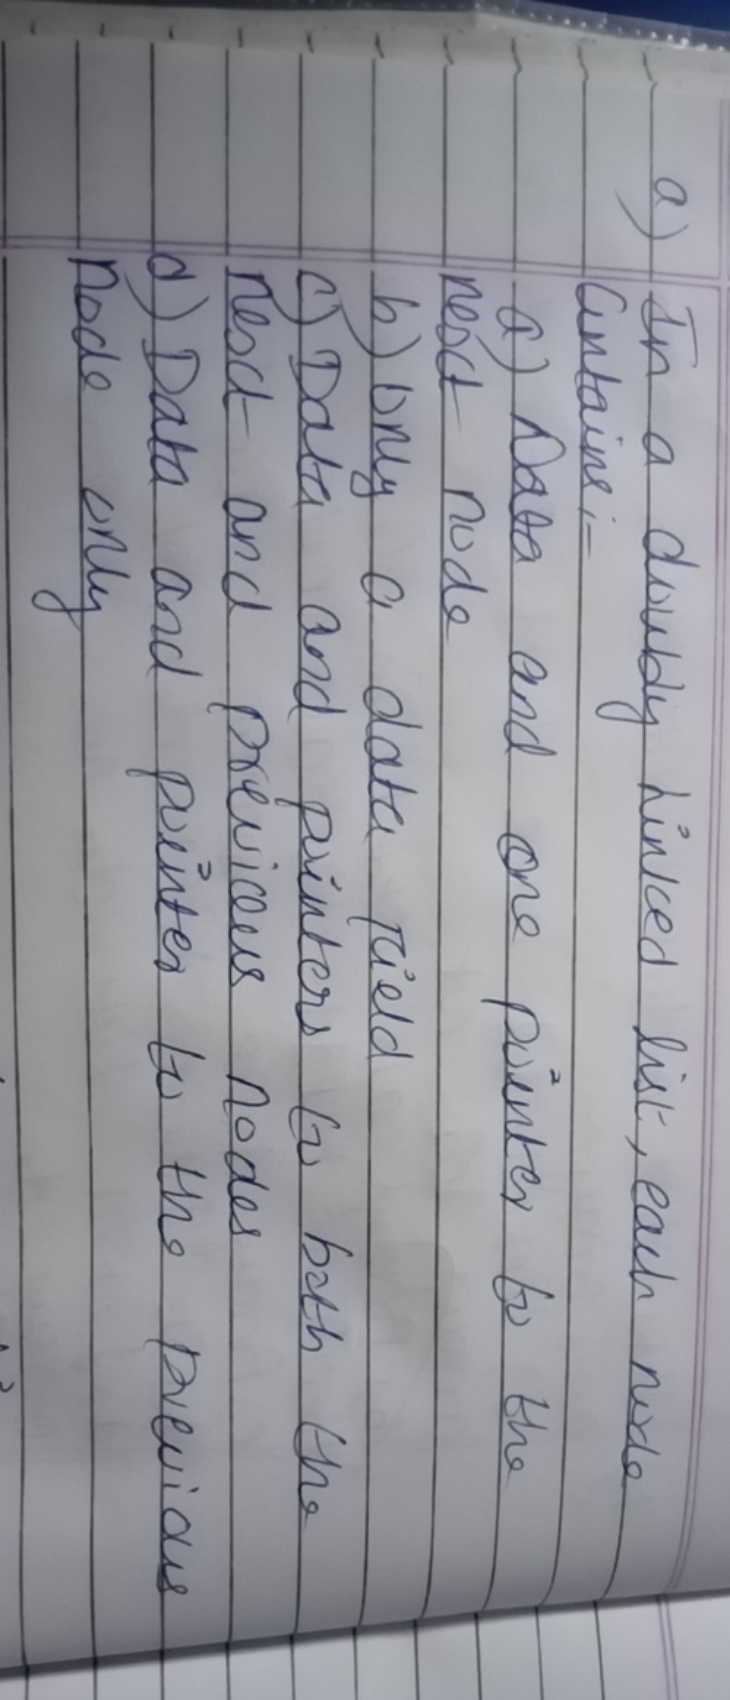 a) In a doubly linked list, each node
Contains:-
a) Data and one pointer to the
next node
b) only a data field
c) Data and pointers to both the
next and previous nodes
d) Data and pointer to the previous
node only